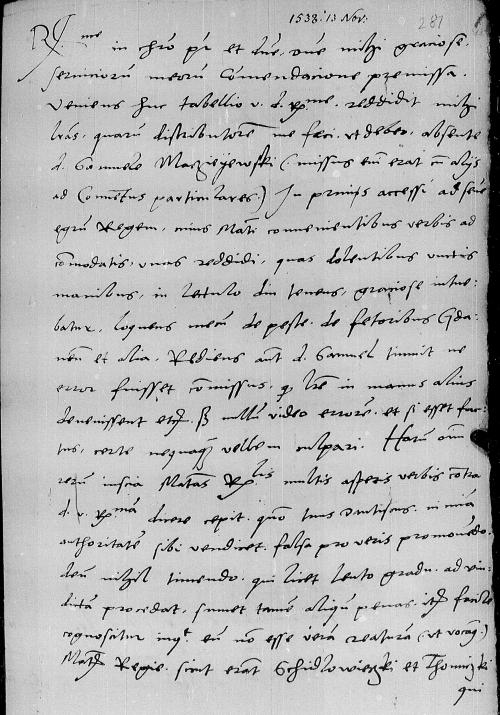 1538. 13 Nov.
287
R[...]me in chro pr et dne, dne mihi graciose.
Servicioru meoru Comendacione premissa.
Veniens huc tabellio v. d. Rme. reddidit mihi
lras, quaru distributore me feci. vt debeo. absente
d. Samuele Maczieyewski (missus em erat cu alijs
ad Comentus particulares.) In primis accessi ad sene
egru Regem, cuius Mati convenientibus verbis ad
comodatis, vnas reddidi, quas dolentibus vnctis
manibus, in lectulo diu tenens, graciose intue-
batur, loquens mecu de peste. de fetoribus Gda-
nen et alia. Rediens aut d. Samuel timuit ne
error fuisset comissus, q lre in manus alius
devenissent etc. S nullu video errore. et si esset fac-
tus, certe nequaq vellem culpari. Haru om
reru inscia Matas Rlis multis asperis verbis contra
d. v. Rma dicere cepit. quo tuus Dantiscus. in mia
authoritate sibi vendicet. falsa pro veris promovedo.
deu nihil timendo. qui licet lento gradu. ad vin-
dicta procedat, sumet tame aliqu penas. etc facile
cognoscitur inqt eu no esse vera creatura (vt vocaq.)
Matis Regie. sicut erat Schidlowieczki et Thomiczki
qui